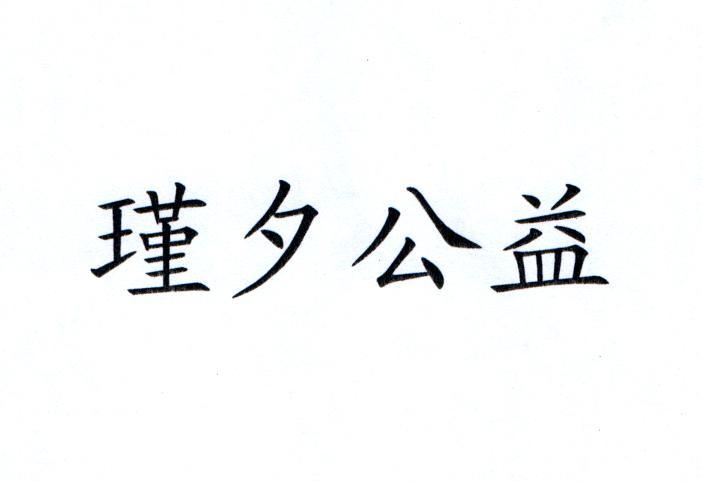 瑾夕公益